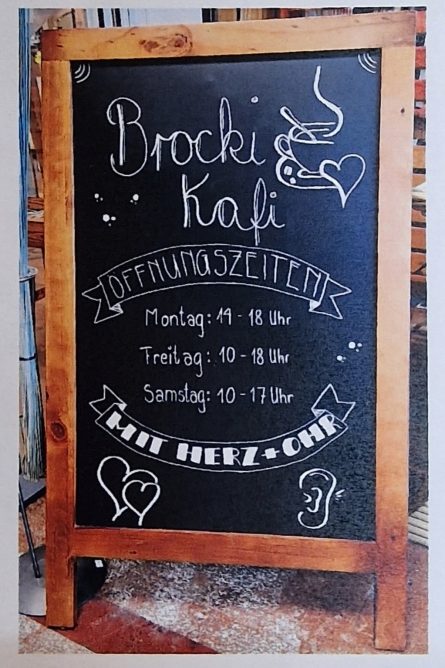 Brocki
Kafi
ÖFFNUNGSZEITEN
Montag: 14 - 18 Uhr
Freitag: 10 - 18 Uhr
Samstag: 10 - 17 Uhr
MIT HERZ + OHR